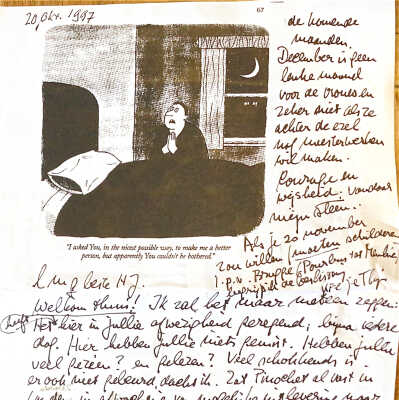 20, Okt. 1997
67
de komende
maanden.
December is geen
leuke maand
voor de vrouw en
zeker niet als ze
achter de ezel
nog meesterwerken
wil maken.
Courage en
wijsheid. Vandaar
mijn
Als je 20 november
zou willen/moeten schilderen
"I asked You, in the nicest possible way, to make me a better
person, but apparently You couldn't be bothered."
beste HJ.
Welkom thuis! Ik zal het maar meteen zeggen:
Het hier in jullie afwezigheid geregend, bijna iedere
dag. Hier hebben jullie niets gemist. Hebben jullie
veel gezien? en gelezen? Veel schokkends is
er ook niet gebeurd, dacht ik. Zat Pinochet al vast in